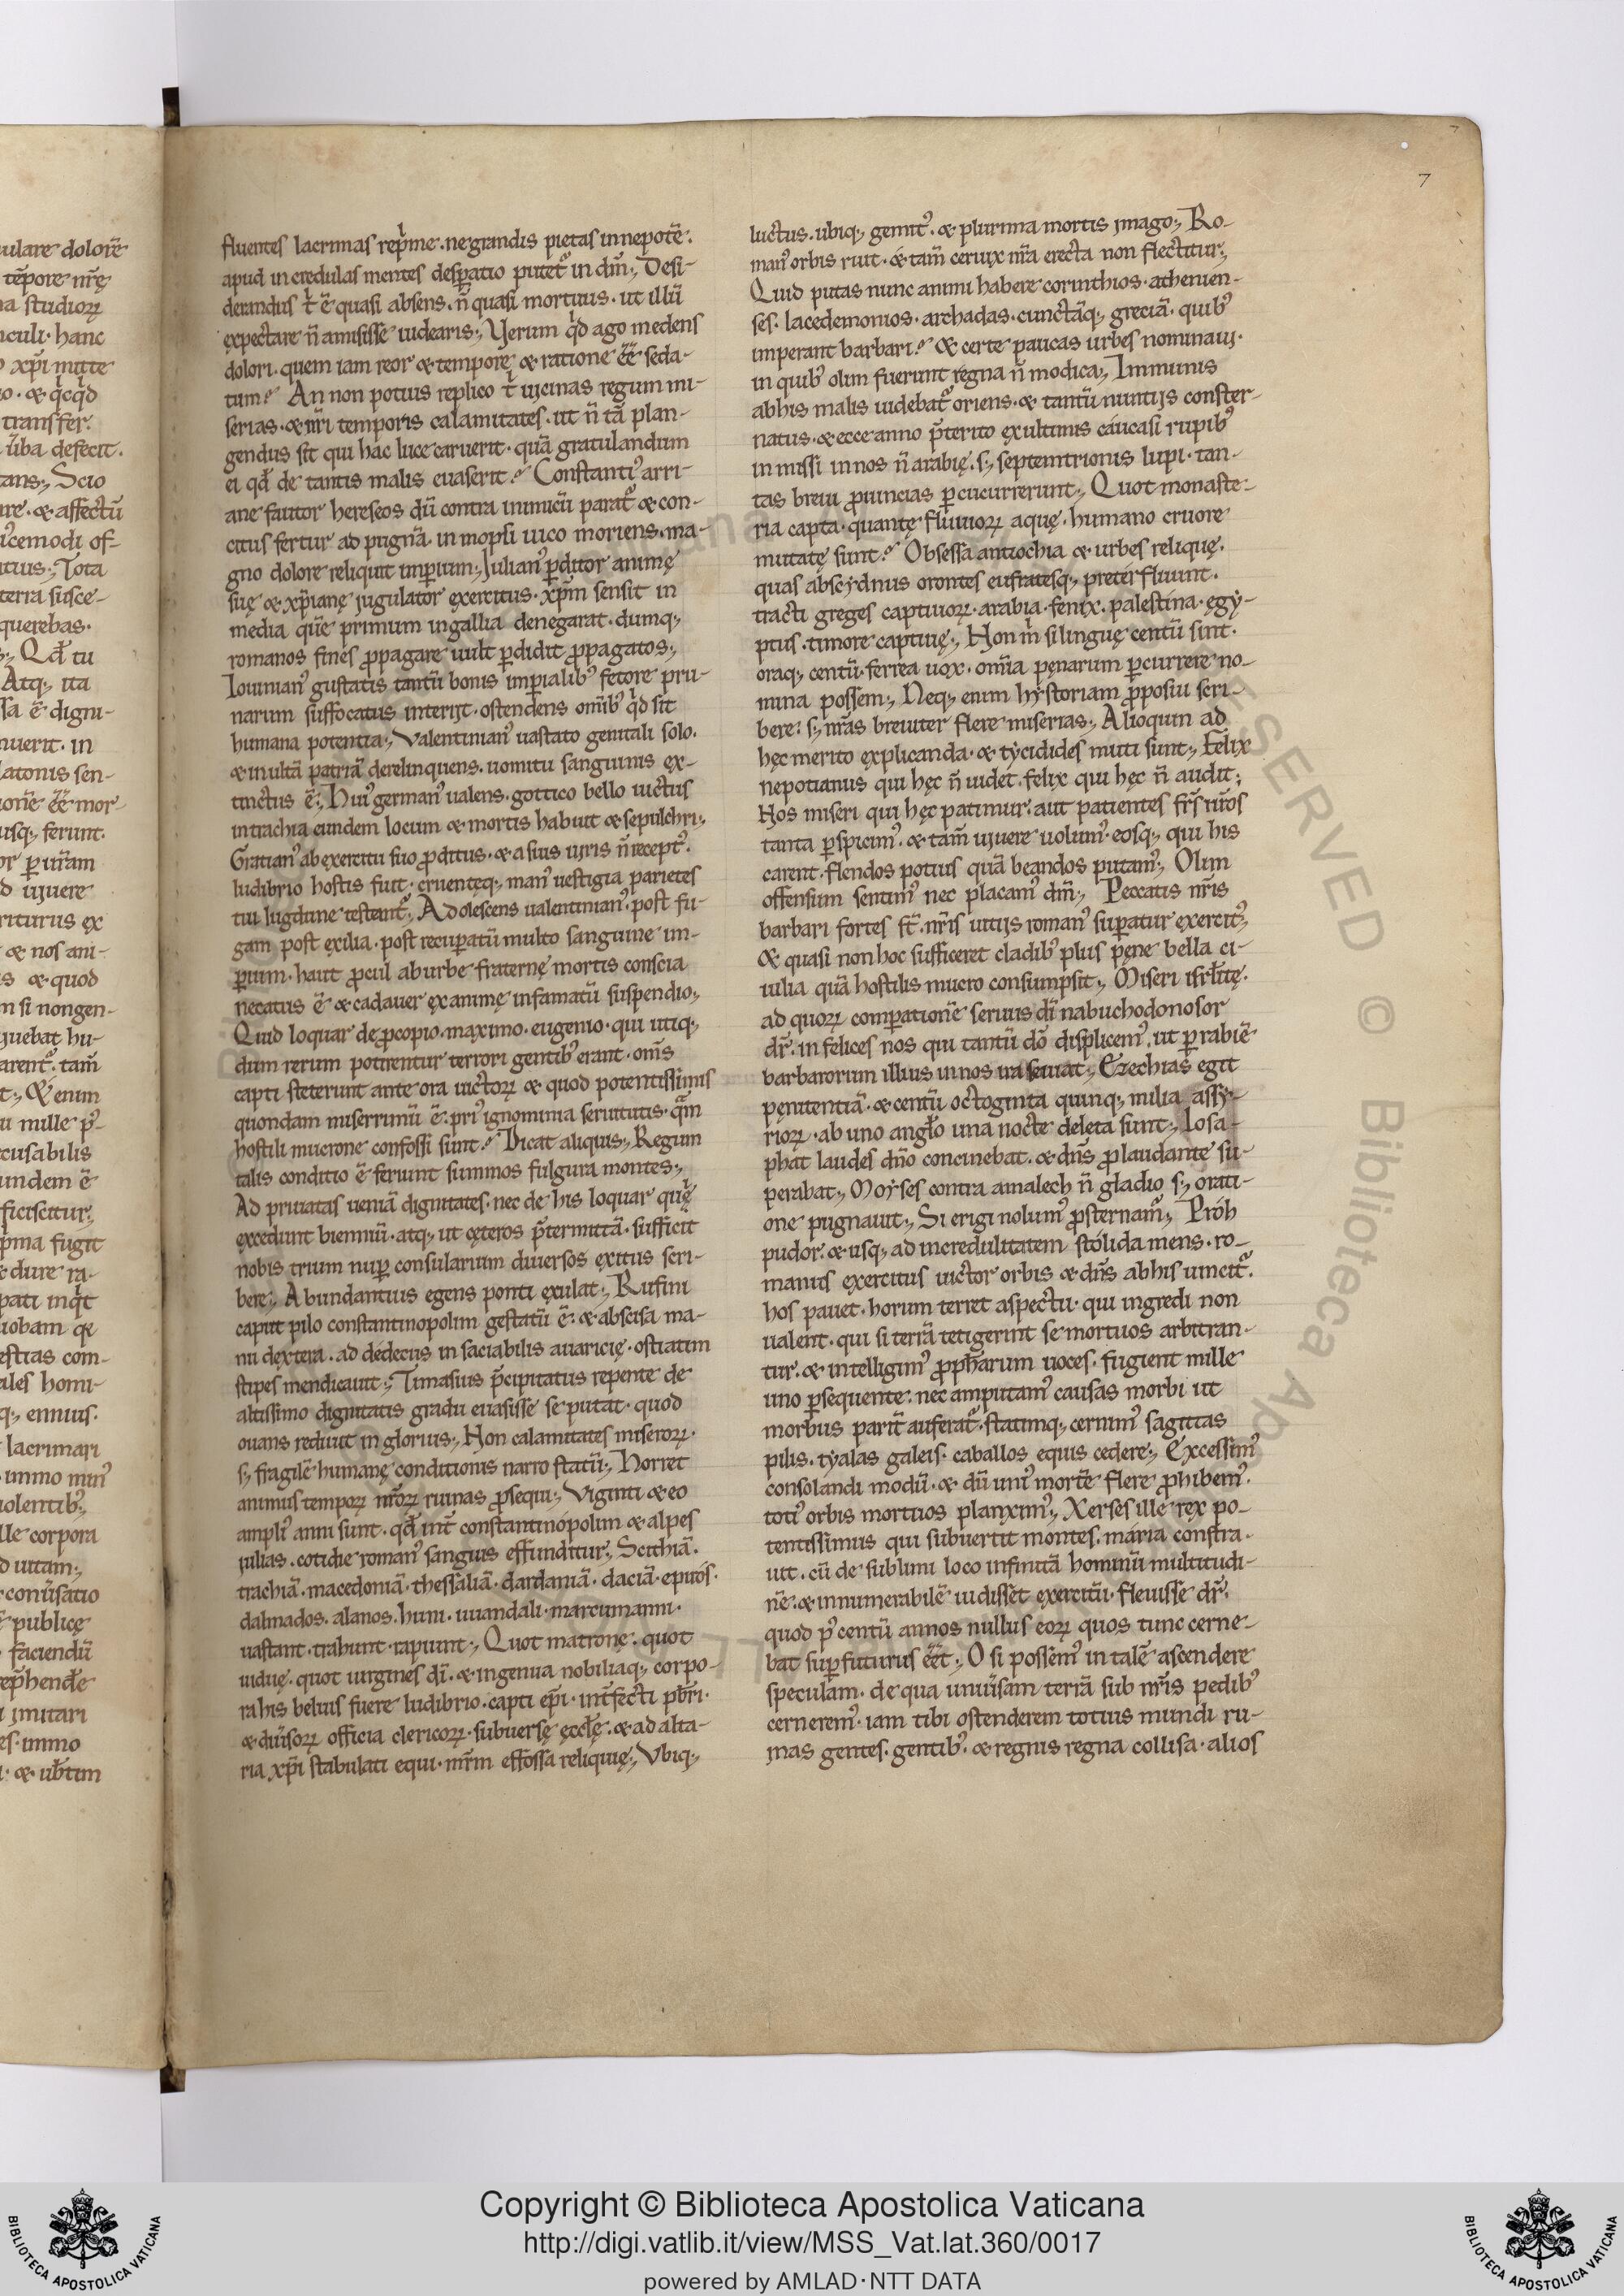 7
fluentes lacrimas rep̍me. ne grandis pietas in nepotē.
apud incredulas mentes desꝑatio putet᷑ in dm̄; Desi-
derandus t̍ ē quasi absens. n̄ quasi mortuus. ut illū
ęxpectare n̄ amisisse uidearis; Verum qd̍ ago medens
dolori. quem iam reor & tempore & ratione ēē seda-
tum? An non potius replico t̍ uicinas regum mi-
serias. & nr̄i temporis calamitates. ut n̄ tā plan-
gendus sit qui hac luce caruerit. quā gratulandum
ei qđ de tantis malis euaserit? Constantiꝰ arri-
ane fautor hereseos dū contra inimicū parat᷑ & con-
citus fertur ad pugnā. in mopsi uico moriens. ma-
gno dolore reliquit imꝑium; Iulianꝰ ꝑditor animę
suę & xp̄ianę iugulator ęxercitus. xp̄m sensit in
media quē primum in gallia denegarat. dumq;
romanos fines ꝓpagare uult ꝑdidit ꝓpagatos;
Iouinianꝰ gustatis tantū bonis imꝑialibꝰ fetore pru-
narum suffocatus interijt. ostendens om̄ibꝰ qd̍ sit
humana potentia; Valentinianꝰ uastato genitali solo.
& inultā patriā derelinquens. uomitu sanguinis ex-
tinctus ē; Huiꝰ germanꝰ ualens. gottico bello uictus
in trachia eundem locum & mortis habuit & sepulchri;
Gratianꝰ ab exercitu suo ꝓditus. & a siuis uiris n̄ receptꝰ.
ludibrio hostis fuit. cruenteq; manꝰ uestigia parietes
tui lugdune testant᷑; Adolescens ualentinianꝰ. post fu-
gam post exilia. post recuꝑatū multo sanguine im-
ꝑium. haut ꝓcul ab urbe fraternę mortis conscia
necatus ē & cadauer exanimę infamatū suspendio;
Quid loquar de ꝓcopio. maximo. eugenio. qui utiq;
dum rerum potirentur terrori gentibꝰ erant. om̄s
capti steterunt ante ora uictoꝝ & quod potentissimis
quondam miserrimū ē. priꝰ ignominia seruitutis. qm̄
hostili mucrone confossi sunt? Dicat aliquis; Regum
talis conditio ē feriunt summos fulgura montes;
Ad priuatas ueniā dignitates. nec de his loquar quę
excedunt bienniū. atq; ut cęteros p̄termittā. sufficit
nobis trium nuꝑ consularium diuersos exitus scri-
bere; Abundantius egens ponti exulat; Rufini
caput pilo constantinopolim gestatū ē. & abscisa ma-
nu dextera. ad dedecus insaciabilis auaricię. ostiatim
stipes mendicauit; Timasius p̄cipitatus repente de
altissimo dignitatis gradu euasisse se putat. quod
ouans rediuit inglorius; Non calamitates miseroꝝ.
s; fragilē humanę conditionis narro statū; Horret
animus tempoꝝ nr̄oꝝ ruinas ꝓsequi; Viginti & eo
ampliꝰ anni sunt. qđ int̄ constantinopolim & alpes
iulias. cotidie romanꝰ sanguis effunditur; Scithiā.
trachiā. macedoniā. thessaliā. dardaniā. daciā. epiros.
dalmados. alanos. huni. uuandali. marcumanni.
uastant. trahunt. rapiunt; Quot matronę. quot
uiduę. quot uirgines dī. & ingenua nobiliaq; corpo-
ra his beluis fuere ludibrio. capti ep̄i. int̄fecti pb̄ri.
& diuīsoꝝ officia clericoꝝ. subuersę ęccłę. & ad alta-
ria xp̄i stabulati equi. mr̄m effossa reliquię; Vbiq;
luctus. ubiq; gemitꝰ. & plurima mortis ymago; Ro-
manꝰ orbis ruit. & tam̄ ceruix nr̄a erecta non flectitur;
Quid putas nunc animi habere corinthios. athenien-
ses. lacedemonios. archadas. cunctāq; greciā. quibꝰ
imperant barbari? & certe paucas urbes nominaui.
in quibꝰ olim fuerunt regna n̄ modica; Immunis
ab his malis uidebat᷑ oriens. & tantū nuntijs conster-
natus. & ecce anno p̄terito ex ultimis caucasi rupibꝰ
inmissi in nos n̄ arabię. s; septemtrionis lupi. tan-
tas breui ꝓuincias ꝑcucurrerunt; Quot monaste-
ria capta. quantę fluuioꝝ aquę. humano cruore
mutatę sunt? Obsessa antiochia & urbes reliquę.
quas abscydnus orontes eufratesq; preterfluunt.
tracti greges captiuoꝝ. arabia. fenix. palestina. ęgy-
ptus. timore captiuę; Non m̍ si linguę centū sint.
oraq; centū. ferrea uox. om̄ia pęnarum ꝑcurrere no-
mina possem; Neq; enim hystoriam ꝓposui scri-
bere. s; nr̄as breuiter flere miserias; Alioquin ad
hęc merito explicanda. & tycidides muti sunt; Felix
nepotianus qui hęc n̄ uidet. felix qui hęc n̄ audit;
Nos miseri qui hęc patimur. aut patientes fr̄s nr̄os
tanta ꝑspicimꝰ. & tam̄ uiuere uolumꝰ. eosq; qui his
carent. flendos potius quā beandos putamꝰ; Olim
offensum sentimꝰ nec placamꝰ dm̄; Peccatis nr̄is
barbari fortes st̄. nr̄is uitijs romanꝰ suꝑatur exercitꝰ;
& quasi non hoc sufficeret cladibꝰ plus pęne bella ci-
uilia quā hostilis mucro consumpsit; Miseri isrłitę.
ad quoꝝ comꝑationē seruus dī nabuchodonosor
dr̄. infelices nos qui tantū dō displicemꝰ. ut ꝑ rabiē
barbarorum illius in nos ira seuiat; Ezechias egit
pęnitentiā. & centū octoginta quinq; milia assy-
rioꝝ. ab uno angło una nocte deleta sunt; Iosa-
phat laudes dn̄o concinebat. & dn̄s ꝓ laudante su-
perabat; Moyses contra amalech n̄ gladio s; orati-
one pugnauit; Si erigi nolumꝰ ꝓsternam᷑; Proh
pudor. & usq; ad incredulitatem stolida mens. ro-
manus exercitus uictor orbis & dn̄s ab his uincit᷑.
hos pauet. horum terret aspectu. qui ingredi non
ualent. qui si terrā tetigerint se mortuos arbitran-
tur. & intelligimꝰ ꝓph̄arum uoces. fugient mille
uno ꝑsequente. nec amputamꝰ causas morbi ut
morbus parit̄ auferat᷑. statimq; cernimꝰ sagittas
pilis. tyalas galeis. caballos equis cedere; Excessimꝰ
consolandi modū. & dū uniꝰ mortē flere ꝓhibemꝰ.
totiꝰ orbis mortuos planximꝰ; Xerses ille rex po-
tentissimus qui subuertit montes. maria constra-
uit. cū de sublimi loco infinitā hominū multitudi-
nē. & innumerabilē uidisset exercitū. fleuisse dr̄.
quod pꝰ centū annos nullus eoꝝ quos tunc cerne-
bat suꝑfuturus eēt; O si possemꝰ in talē ascendere
speculam. de qua uniūsam terrā sub nr̄is pedibꝰ
cerneremꝰ. iam tibi ostenderem totius mundi ru-
inas gentes. gentibꝰ. & regnis regna collisa. alios
Copyright © Biblioteca Apostolica Vaticana
http://digi.vatlib.it/view/MSS_Vat.lat.360/0017
powered by AMLAD·NTT DATA
BIBLIOTECA APOSTOLICA VATICANA
BIBLIOTECA APOSTOLICA VATICANA